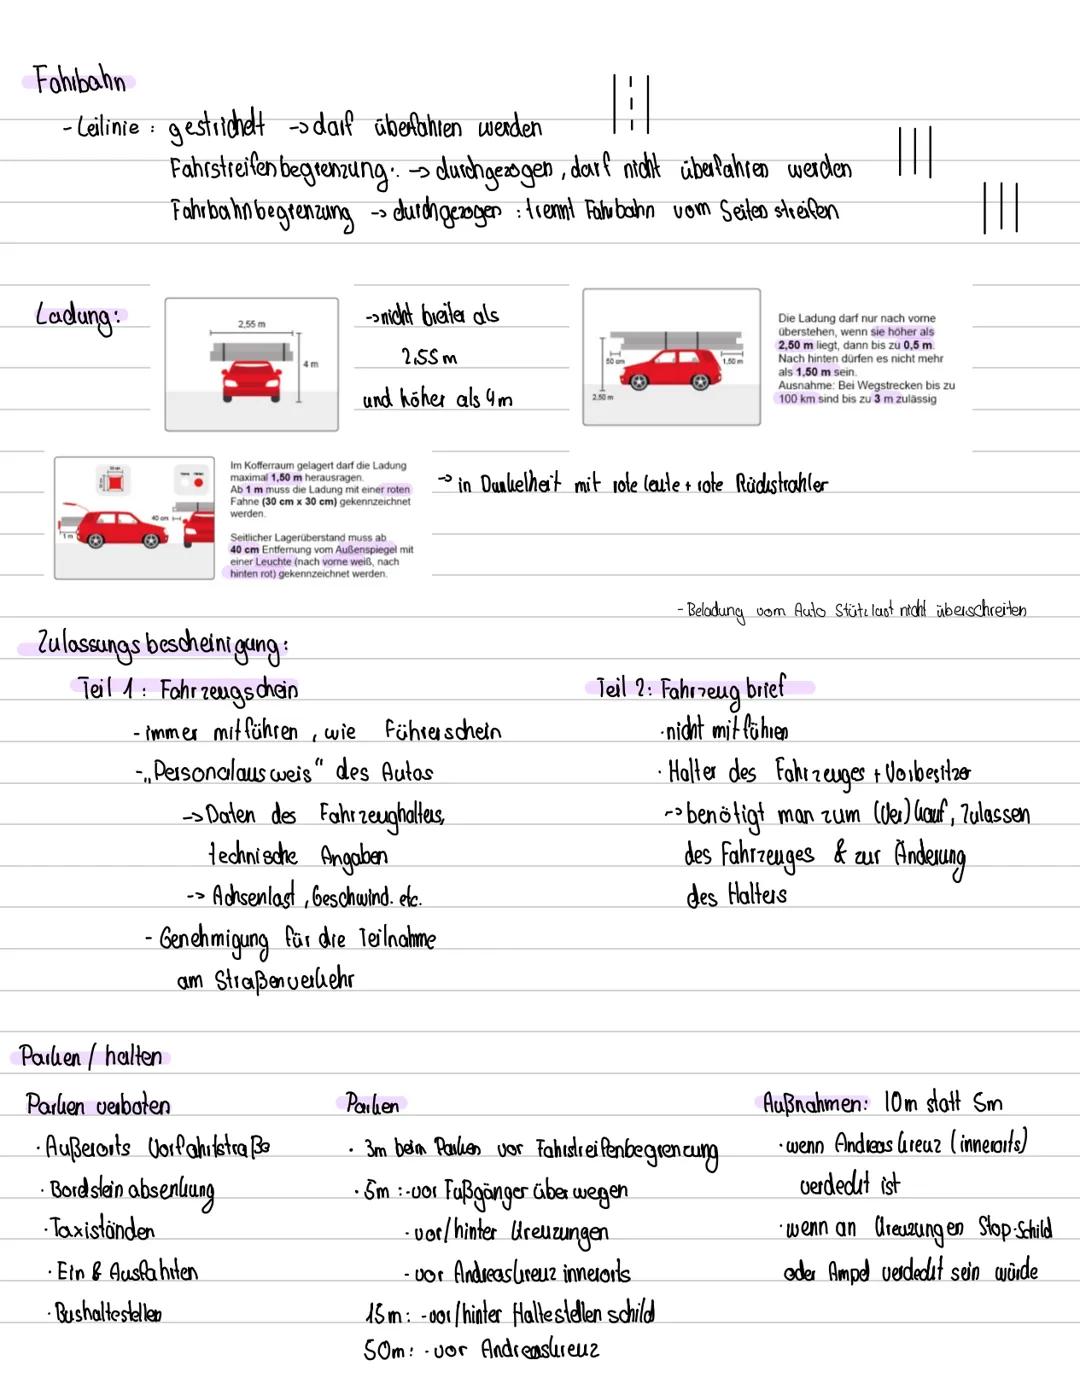 Fahrbahn
- Leilinie : gestrichelt -> darf überfahren werden
Fahrstreifenbegrenzung: -> durchgezogen, darf nicht überfahren werden
Fahrbahnbegrenzung -> durchgezogen : trennt Fahrbahn vom Seitenstreifen
Ladung:
2,55 m
4 m
-> nicht breiter als
2,55m
und höher als 4m
50 cm
1,50 m
2,50 m
Die Ladung darf nur nach vorne
überstehen, wenn sie höher als
2,50 m liegt, dann bis zu 0,5 m.
Nach hinten dürfen es nicht mehr
als 1,50 m sein.
Ausnahme: Bei Wegstrecken bis zu
100 km sind bis zu 3 m zulässig
40 cm
1 m
Im Kofferraum gelagert darf die Ladung
maximal 1,50 m herausragen.
Ab 1 m muss die Ladung mit einer roten
Fahne (30 cm x 30 cm) gekennzeichnet
werden.
Seitlicher Lagerüberstand muss ab
40 cm Entfernung vom Außenspiegel mit
einer Leuchte (nach vorne weiß, nach
hinten rot) gekennzeichnet werden.
-> in Dunkelheit mit rote Leute + rote Rückstrahler
- Beladung vom Auto Stützlast nicht überschreiten
Zulassungsbescheinigung:
Teil 1: Fahrzeugschein
- immer mitführen, wie Führerschein
- „Personalausweis" des Autos
-> Daten des Fahrzeughalters,
technische Angaben
-> Achsenlast, Geschwind. etc.
- Genehmigung für die Teilnahme
am Straßenverkehr
Teil 2: Fahrzeugbrief
· nicht mitführen
· Halter des Fahrzeuges + Vorbesitzer
-> benötigt man zum (Ver)kauf, Zulassen
des Fahrzeuges & zur Änderung
des Halters
Parken / halten
Parken verboten
· Außerorts Vorfahrtstraße
· Bordsteinabsenkung
· Taxiständen
· Ein & Ausfahrten
· Bushaltestellen
Parken
· 3m beim Parken vor Fahrstreifenbegrenzung
· 5m : -vor Fußgängerüberwegen
- vor/hinter Kreuzungen
- vor Andreaskreuz innerorts
15m: -vor/hinter Haltestellenschild
50m: -vor Andreaskreuz
Außnahmen: 10m statt 5m
· wenn Andreaskreuz (innerorts)
verdeckt ist
· wenn an Kreuzungen Stop-Schild
oder Ampel verdeckt sein würde